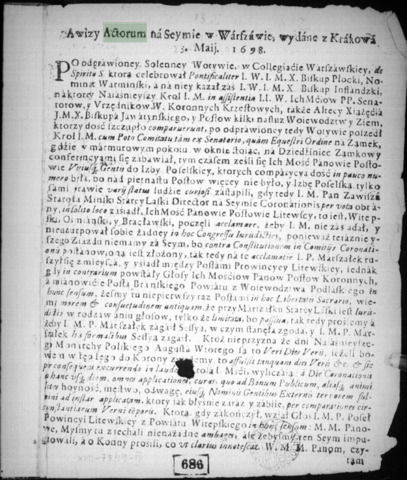 Awizy Actorum ná Seymie w Wárszáwie, wydáne z Krákowá
Maij. 1698.
PO odpráwioney Solenney Wotywie, w Collegiacie Wárszáwskiey, de
Spiritu S. ktorą celebrował Pontificaliter I. W. I. M. X. Biskup Płocki, No-
minat Wármiński, á ná niey kazał záś I. W. I. M. X. Biskup Inflandzki,
ná ktorey Náiáśnieyszy Krol I. M. in assistentia I. I. W. Ich Mćiow PP. Sená-
torow, y Vrzędnikow W. Koronnych Krzesłowych, tákże Alteży Xiążęćiá
J. M. X. Biskupá Jáwáryńskiego, y Posłow kilku násztuz Woiewodztw y Ziem,
ktorzy dość iszczápło comparuerunt, po odpráwioney tedy Wotywie poszedł
Krol I. M. cum Poto Comitatu tám ex Senatorio, quàm Equestri Ordine ná Zamek,
gdźie w mármurowym pokoiu, w oknie stoiąc, ná Dźiedźiniec Zamkowy
conferencyámi się zábáwiał, tym czásem ześli się Ich Mość Pánowie Posło-
wie Gentis do Izby Poselskiey, ktorych compárycya dość in pauco nu-
mero byłá, bo nád piętnastu Posłow więcey nie było, y Izbę Poselską tylko
sámi stáwie varij status ludźie zástąpili, gdy tedy I. M. Pan Záwiszá
Stárostá Minski Stáry Laski Director ná Seymie Coronationis per vota obrá-
ny, insolito loco zásiadł, Ich Mość Pánowie Posłowie Litewscy, to iest, Witep-
ski, Osmiáński, y Brácłáwski, poczęli acclamare, żeby I. M. nie zás adał, y
nieuzurpował sobie żadney in hoc Congressu Iurisdictiei, ponieważ teráznieysze-
go Ziázdu niemamy zá Seym, bo contra Constitutionem in Comitijs Coronati-
onis postánowioną iest złożony, ták tedy ná te acclamatie I. P. Márszáłek ru-
szył się z mieyscá, y usiadł między Posłámi Prowincyey Litewskiey, iednák-
że gdy in contrarium powstáły Głosy Ich Mośćiow Pánow Posłow Koronnych,
á mianowićie Postá Bránskiego Powiátu z Woiewodztwá Podláskiego in
hunc sensum, żeśmy tu nie pierwszy raz Posłámi in hac Libertatis Sacrario, wie-
my morem & consuetudinem antiquam że przy Márszáłku Stáry Laski iest Iuris-
dictio w rozdawániu głosow, tylko że limitata, bo passiva, ták tedy prosiemy á
żeby I. M. P. Márszáłek zágáił Sessyą, w czym stánęłá zgodá, y I. M. P. Már-
száłek his formalibus Sessyą zágáił. Ktoż nieprzyzna że dni Náiáśnieysze-
go Monárchy Polskiego Augustá Wtorego są to Veri Dies Veris, ieżeli bo-
wiem w się tego do Korony zemy, to assulsit tanquam dies Veris &c. & sic
pro consequens excurrendo in laudes Krolá I. Mći. wyliczáiąc á Die Coronationis
ad hanc usq; diem, omnes applicationes, curas, quò ad Bonum Publicum, álias animi-
tey hoyność, męstwo, odwagę, eiusq; Nominis Gentibus Externis terrorem ful-
mini ad instar applicatum, ktory ták błyśnie záraz y zábiie, per comparationes cir-
cumstantiarum Verni tëporis. Ktorą gdy zákończył, wźiął Głos I. M. P. Poseł
Prowincyi Litewskiey z Powiátu Witepskiego in hunc sensum: M. M. Páno-
wie, Myśmy tu źiecháli nienáżadne ambages, ále żebyśmy ten Seym impu-
gnowáli, á o Konny prośili, co ut clarius innotescat. W. M. M. Pánom, czy-
tam
686